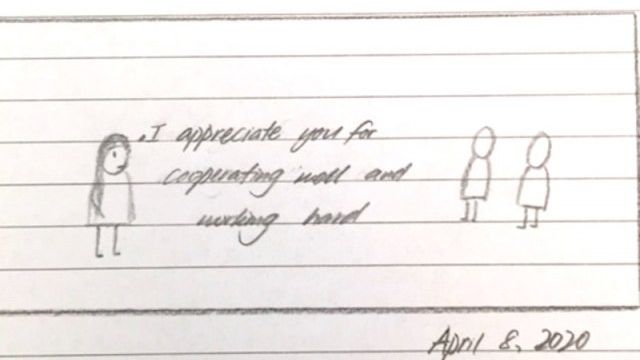 I appreciate you for
cooperating well and
working hard
April 8, 2020